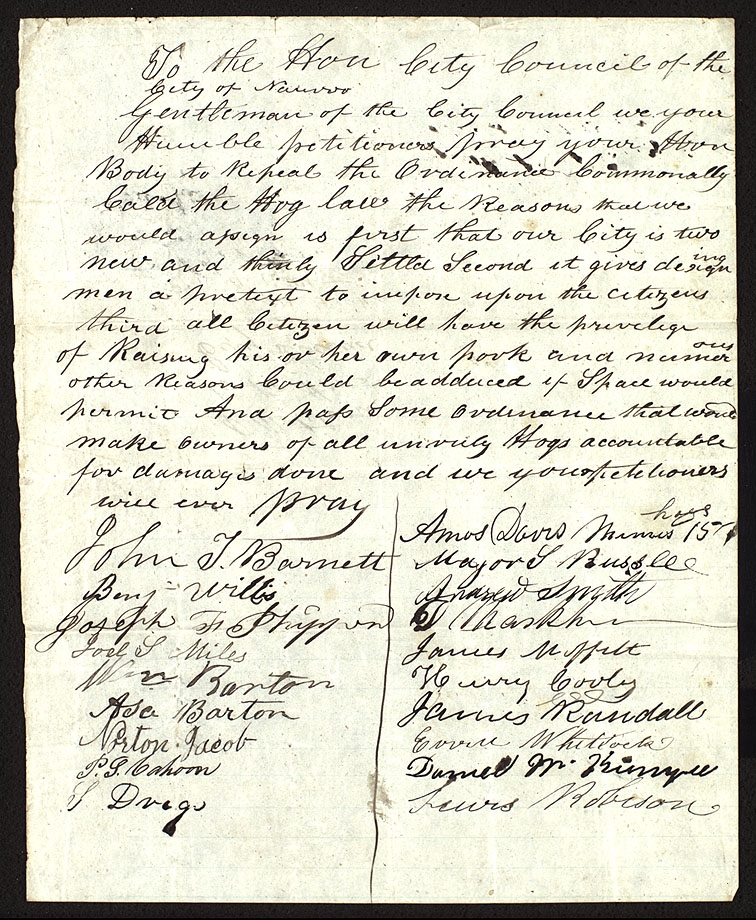 To the Hon City Council of the
City of Nauvoo
Gentleman of the City Council we your
Humble petitioners pray your Hon
Body to Repeal the Ordinance Commonally
Cald the Hog law the Reasons that we
would assign is first that our City is two
new and thinly Settld Second it gives designing
men a pretext to impose upon the citizens
third all Citizen will have the privelige
of Raising his or her own pork and numerous
other Reasons Could be adduced if Space would
permit And pass Some Ordinance that would
make owners of all unruly Hogs accountable
for damages done and we your petitioners
will ever pray
John T. Barnett
Benj Willis
Joseph F Shippen
Joel S Miles
Wm Barton
Asa Barton
Norton Jacob
P. G. Cahoon
S Drigs
Amos Davis hogs 15
Major S Russle
Andrew Smith
S Markham
James Moffitt
Henry Cooly
James Randall
Whitlock
Daniel
Lewis Robison